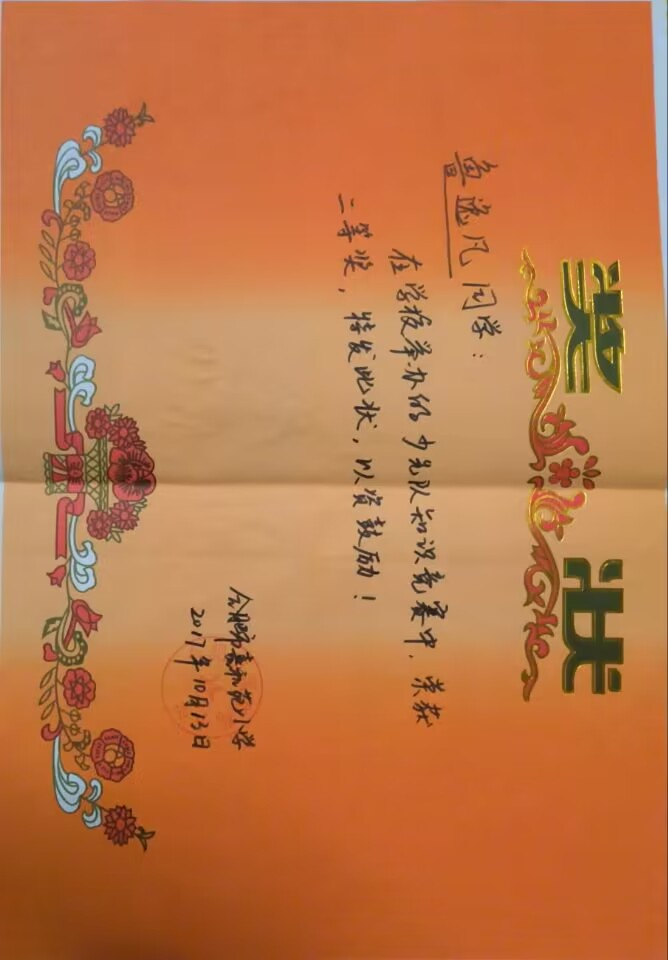 奖状
鲁逸凡同学：
在学校举办的少先队知识竞赛中，荣获
二等奖，特发此状，以资鼓励！
合肥市嘉和苑小学
2017年10月13日